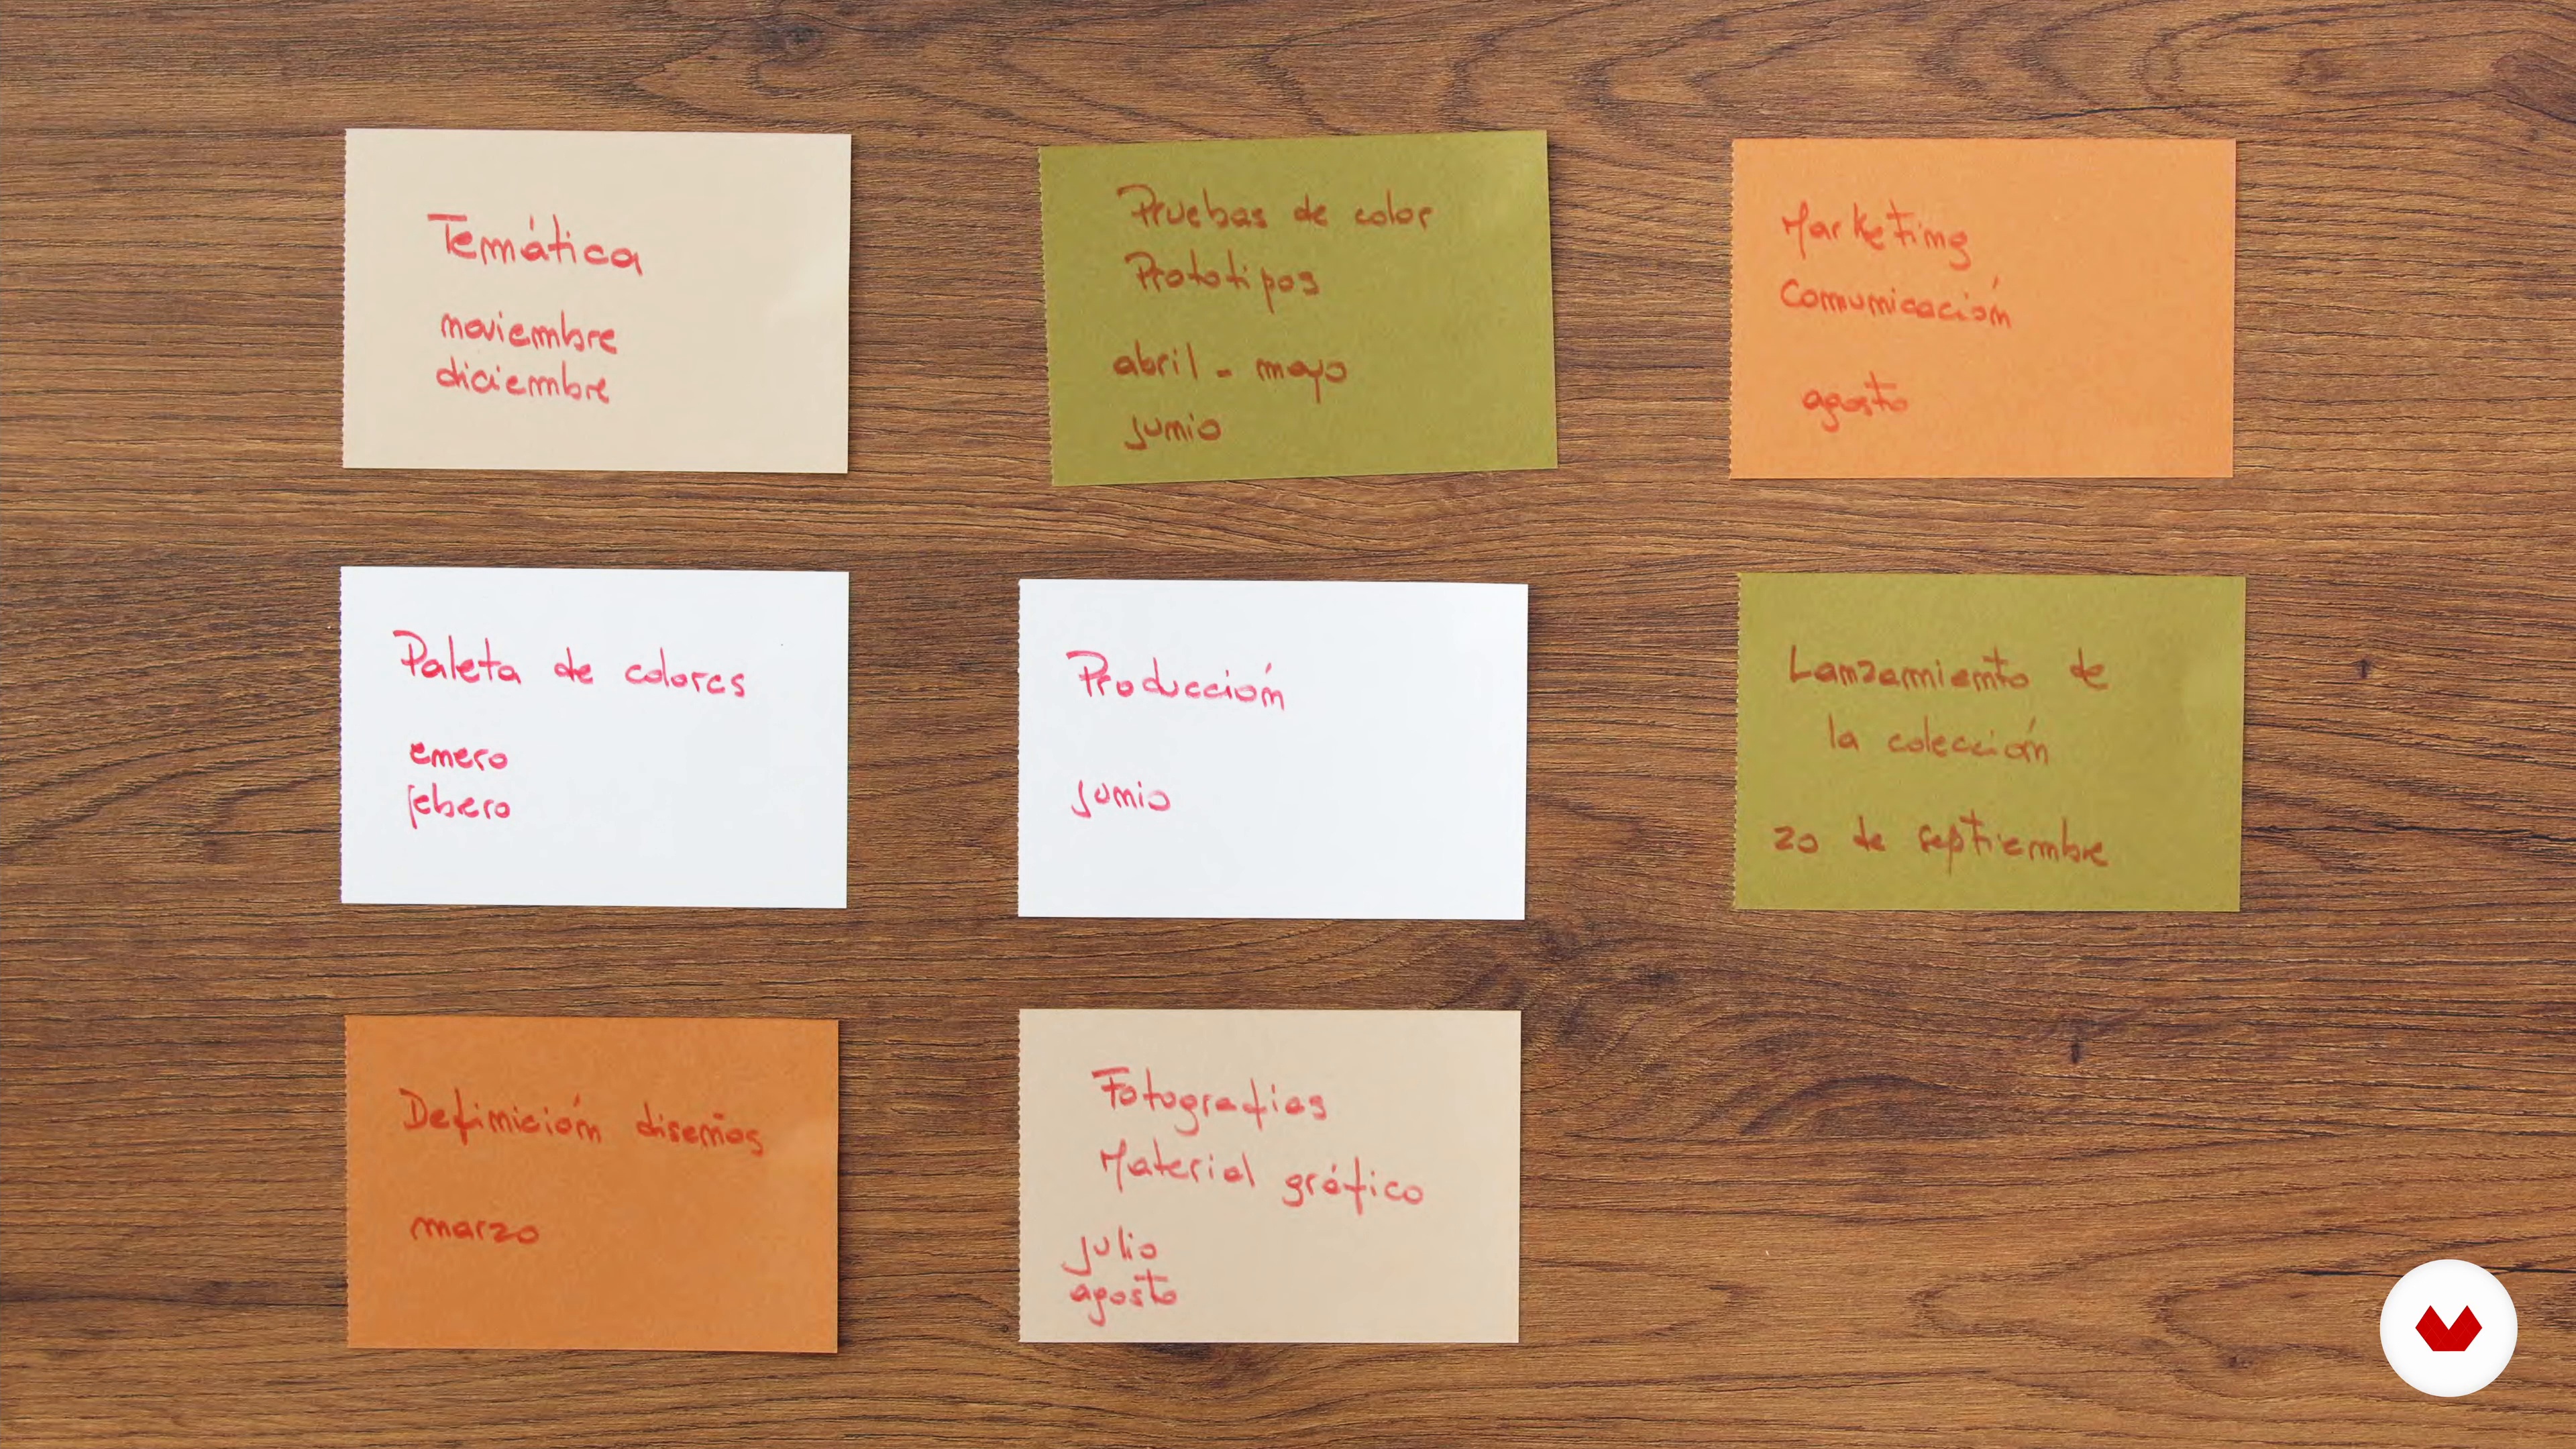 Temática
noviembre
diciembre
Paleta de colores
enero
febero
Definición diseños
marzo
Pruebas de color
Prototipos
abril - mayo
junio
Producción
junio
Fotografias
Material gráfico
julio
agosto
Marketing
Comunicación
agosto
Lanzamiento de
la colección
20 de septiembre